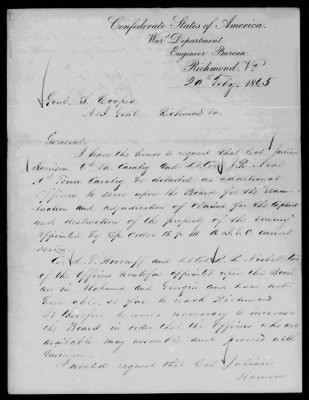 Confederate States of America.
War Department
Engineer Bureau.
Richmond, Va
20 Feby. 1865
Genl. S. Cooper
A & I Genl Richmond Va.
General
I have the honor to request that Col Julian
Harrison 6th Va. Cavalry and J. R. Neal
Tenn Cavalry be detailed as additional
Officers to serve upon the Board for the exam-
ination and adjudication of claims for the capture
and destruction of the property of the Enemy
appointed by Sp. Order A & I G O Current
series.
Col and Lt Col Nisbet two
of the Officers heretofore appointed upon this Board
are in Alabama and Georgia and have not
been able, so far to reach Richmond
It therefore becomes necessary to increase
the Board in order that the Officers who are
available may assemble and proceed with
business.
I would request that Col. Julian
Harrison